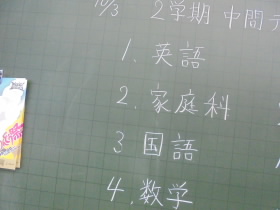 10/3 2学期 中間
1. 英語
2. 家庭科
3 国語
4. 数学